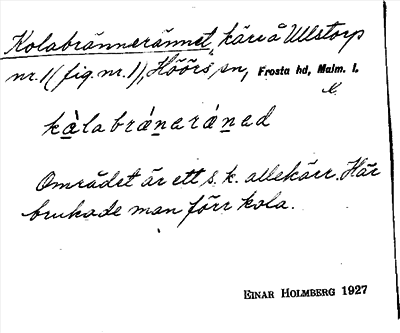 Kolabrännerännet, kärr å Ullstorp
nr. 1 (fig. nr. 1), Höörs sn, Frosta hd, Malm. l.
kàlabráneráned
Området är ett s. k. allekärr. Här
brukade man förr kola.
EINAR HOLMBERG 1927